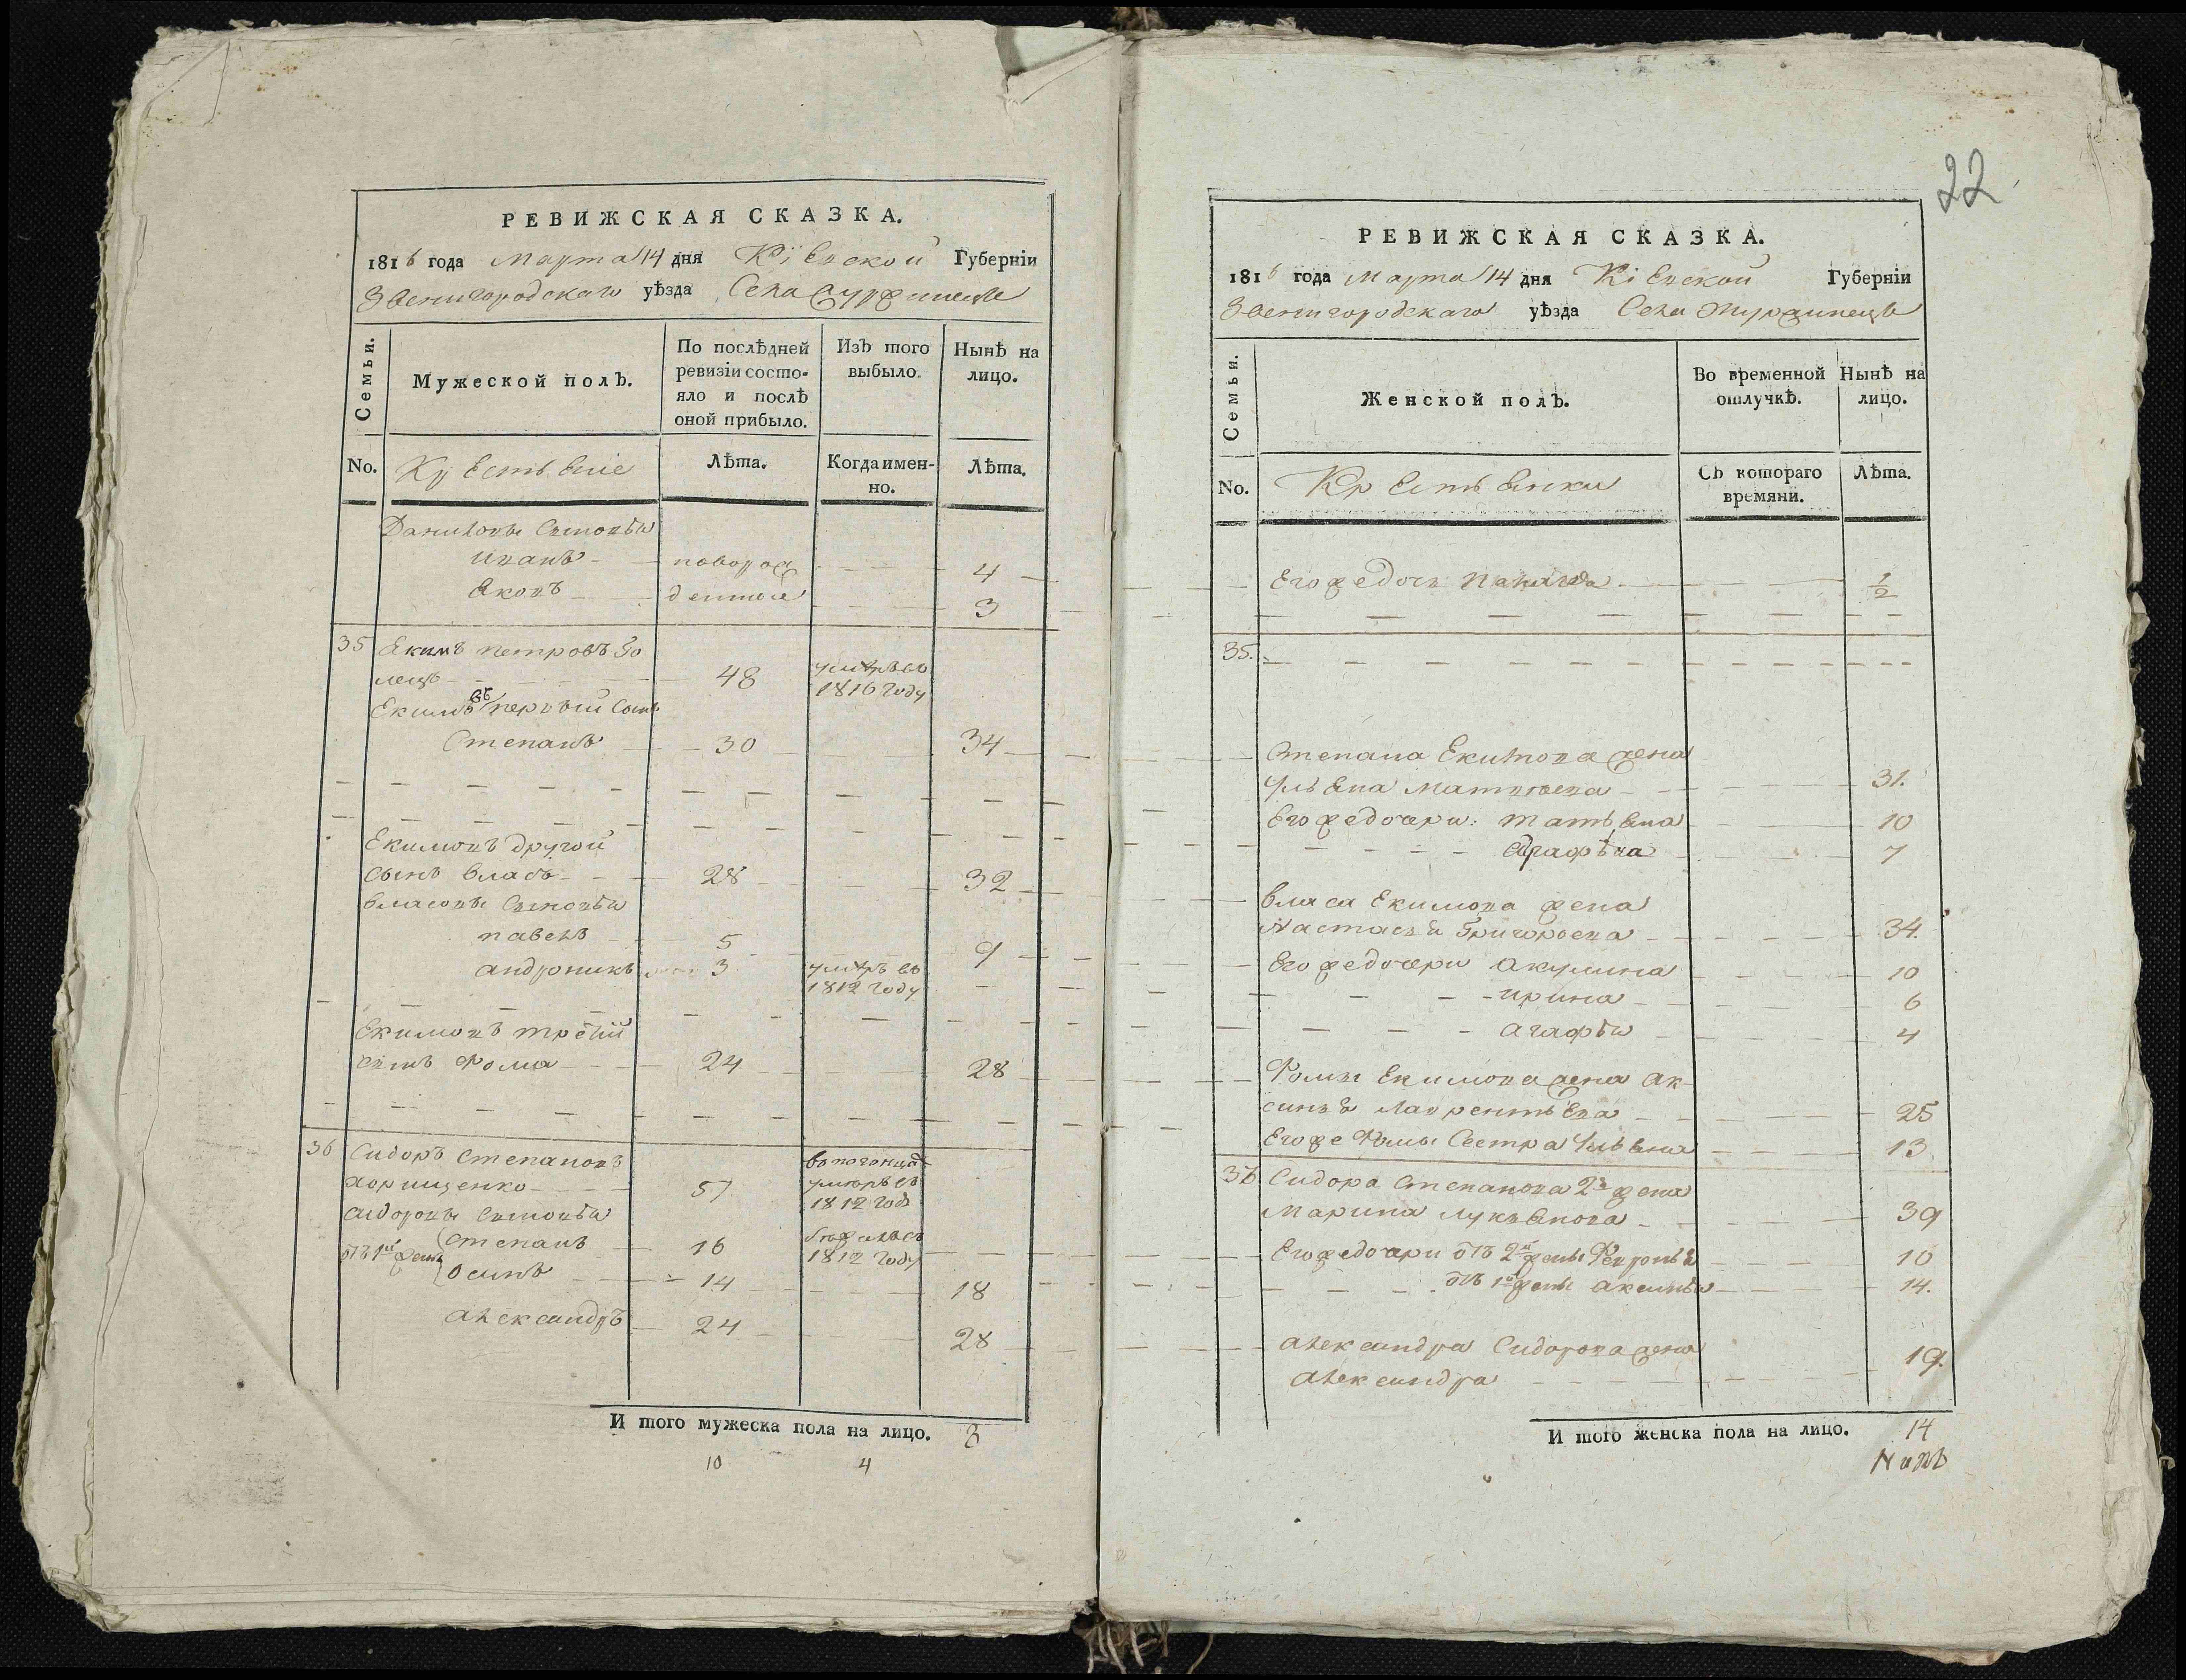 РЕВИЖСКАЯ СКАЗКА.
1816 года Марта 14 дня Кіевской Губерніи
Звенигородскаго уѣзда Села
Семьи.
Мужеской полъ.
По послѣдней
ревизіи состо-
яло и послѣ
оной прибыло.
Изъ того
выбыло.
Нынѣ на
лицо.
No.
Крестьяніе
Лѣта.
Когда имен-
но.
Лѣта.
Даниловы Сыновья
Иванъ - новорож 4
Яковъ - денные 3
35 Екимъ Петровъ Го
лецъ 48 умре въ
1816 году
Екимовъ первый Сынъ
Степанъ 30 34
Екимовъ другой
сынъ Власъ 28 32
Власовы Сыновья
павелъ 5 9
андроникъ 3 умре въ
1812 году
Екимовъ третій
сынъ Фома 24 28
36 Сидоръ Степановъ
57 умре въ
1812 год
Сидоровы Сыновья
Степанъ 16
отъ 1й жены 1812 году
Осипъ 14 18
александръ 24 28
И того мужеска пола на лицо. 8
10 4
22
РЕВИЖСКАЯ СКАЗКА.
1816 года Марта 14 дня Кіевской Губерніи
Звенигородскаго уѣзда Села Журжинецъ
Семьи.
Женской полъ.
Во временной
отлучкѣ.
Нынѣ на
лицо.
No.
Крестьянки
Съ котораго
времяни.
Лѣта.
Егожедочь 1/2
35.
Степана Екимова жена
Ульяна Матвѣева 31.
Егожедочери: татьяна 10
Агафья 7
Власа Екимова жена
Настасья Григорьева 34.
Егожедочери акулина 10
ирина 6
агафья 4
Фомы Екимова жена ак
синья Лаврентьева 25
Егоже Фомы Сестра Ульяна 13
36 Сидора Степанова 2я жена
Марина Лукьянова 39
Егожедочери отъ 2й жены 10
отъ 1й жены аксинья 14.
александра Сидорова жена
александра 19.
И того женска пола на лицо. 14